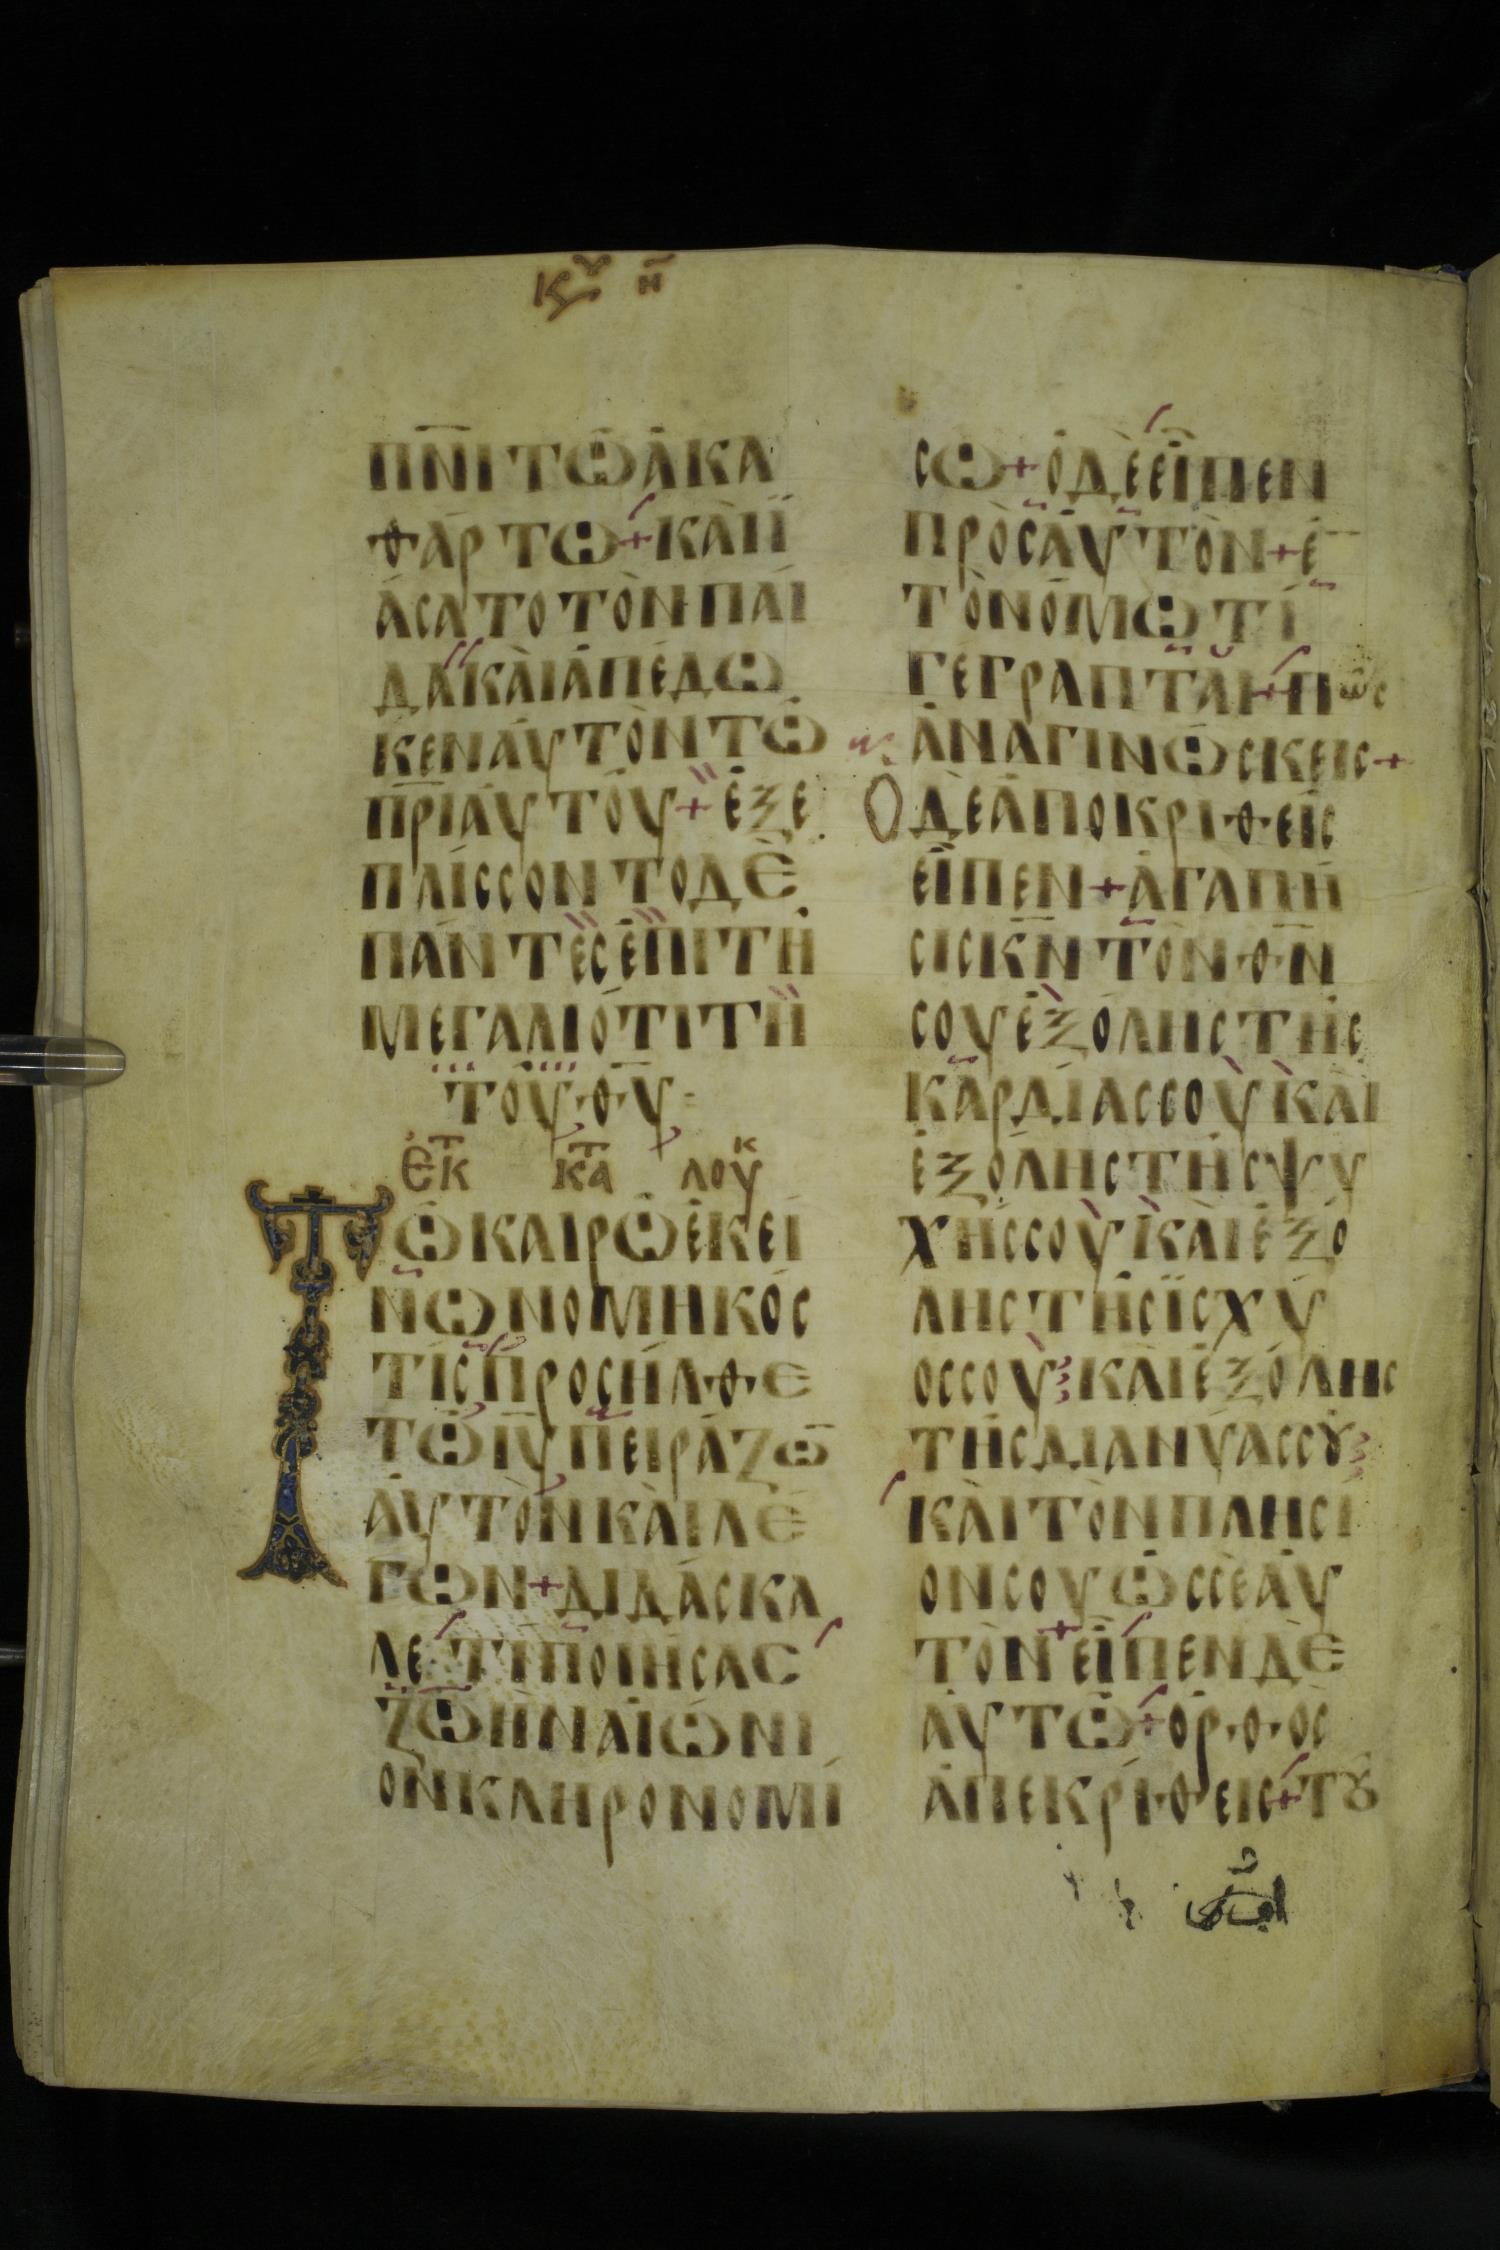 Κυ Η
ΠΝ̅Ι ΤΩ ΑΚΑ
ΘΑΡΤΩ + ΚΑΙ Ϊ
ΑCΑΤΟ ΤΟΝ ΠΑΙ
ΔΑ ΚΑΙ ΑΠΕΔΩ
ΚΕΝ ΑΥΤΟΝ ΤΩ
Π̅Ρ̅Ι ΑΥΤΟΥ + ΕΞΕ
ΠΛΙCCΟΝΤΟ ΔΕ
ΠΑΝΤΕC ΕΠΙ ΤΗ
ΜΕΓΑΛΙΟΤΙΤΗ
ΤΟΥ Θ̅Υ̅
ΕΚ ΚΤΑ ΛΟΥΚ
ΤΩ ΚΑΙΡΩ ΕΚΕΙ
ΝΩ ΝΟΜΗΚΟC
ΤΙC ΠΡΟCΗΛΘΕ
ΤΩ Ι̅Υ̅ ΠΕΙΡΑΖΩ̅
ΑΥΤΟΝ ΚΑΙ ΛΕ
ΓΩΝ + ΔΙΔΑCΚΑ
ΛΕ ΤΙ ΠΟΙΗCΑC
ΖΩΗΝ ΑΙΩΝΙ
ΟΝ ΚΛΗΡΟΝΟΜΙ
CΩ + Ο ΔΕ ΕΙΠΕΝ
ΠΡΟC ΑΥΤΟΝ + Ε̅
ΤΟ ΝΟΜΩ ΤΙ
ΓΕΓΡΑΠΤΑΙ + ΠΩC
ΑΝΑΓΙΝΩCΚΕΙC +
Ο ΔΕ ΑΠΟΚΡΙΘΕΙC
ΕΙΠΕΝ + ΑΓΑΠΗ
CΙC Κ̅Ν̅ ΤΟΝ Θ̅Ν̅
CΟΥ ΕΞ ΟΛΗC ΤΗC
ΚΑΡΔΙΑC CΟΥ ΚΑΙ
ΕΞ ΟΛΗC ΤΗC ΨΥ
ΧΗC CΟΥ ΚΑΙ ΕΞ Ο
ΛΗC ΤΗC ΙCΧΥ
ΟC CΟΥ ΚΑΙ ΕΞ ΟΛΗC
ΤΗC ΔΙΑΝΥΑC CΟΥ
ΚΑΙ ΤΟΝ ΠΛΗCΙ
ΟΝ CΟΥ ΩC CΕΑΥ
ΤΟΝ + ΕΙΠΕΝ ΔΕ
ΑΥΤΩ + ΟΡΘΟC
ΑΠΕΚΡΙΘΕΙC + ΤΟΥ